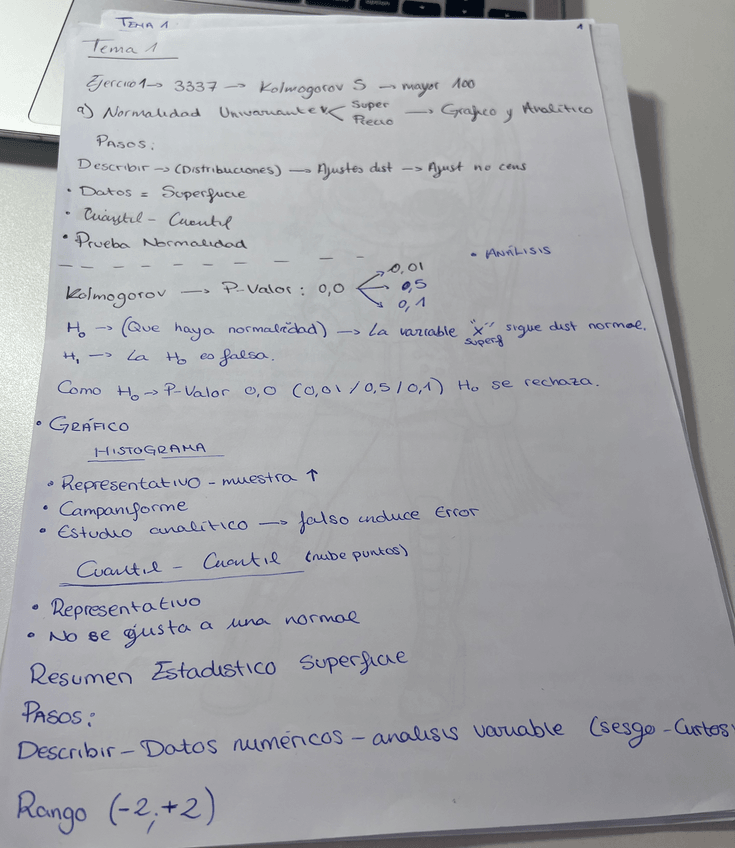 TEMA 1
1
Tema 1
Ejercicio 1 → 3337 → Kolmogorov S → mayor 100
a) Normalidad Univariante < Super → Grafico y Analítico
Precio
PASOS:
Describir → (Distribuciones) → Ajustes dist → Ajust no cens
• Datos = Superficie
• Cuantil - Cuantil
• Prueba Normalidad
• ANÁLISIS
Kolmogorov → P-Valor: 0,0
0,01
0,5
0,1
H₀ → (Que haya normalidad) → La variable "x" sigue dist normal.
superf
H₁ → La H₀ es falsa.
Como H₀ → P-Valor 0,0 (0,01 / 0,5 / 0,1) H₀ se rechaza.
• GRÁFICO
HISTOGRAMA
• Representativo - muestra ↑
• Campaniforme
• Estudio analítico → falso induce Error
Cuantil - Cuantil (nube puntos)
• Representativo
• No se ajusta a una normal
Resumen Estadistico Superficie
PASOS:
Describir - Datos numéricos - analisis variable (sesgo - Curtos
Rango (-2;+2)